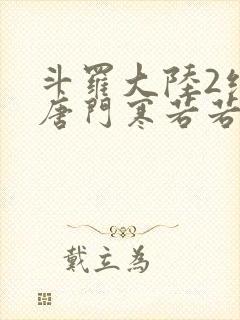 斗羅大陸2
唐門寒若若
戴立為